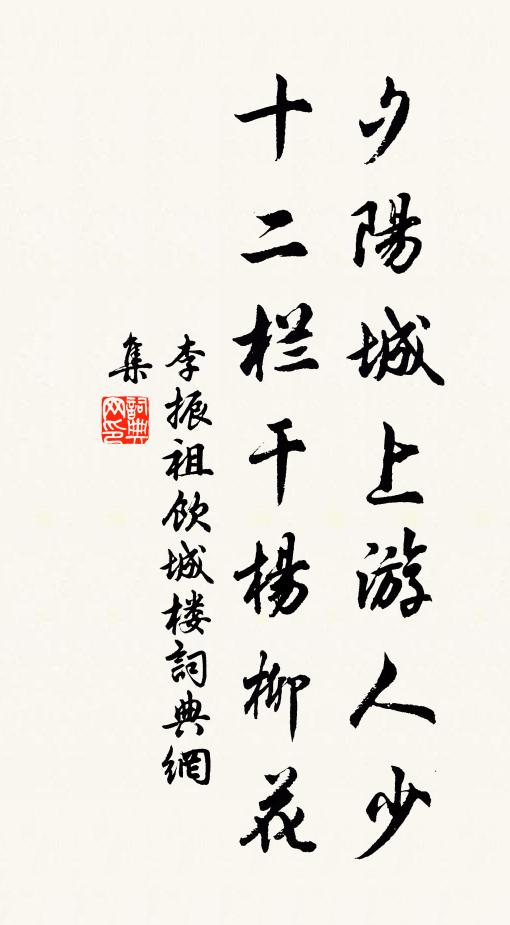 夕陽城上游人少
十二栏干楊柳花
李振祖飲城楼詞典網
集
詞典
网印